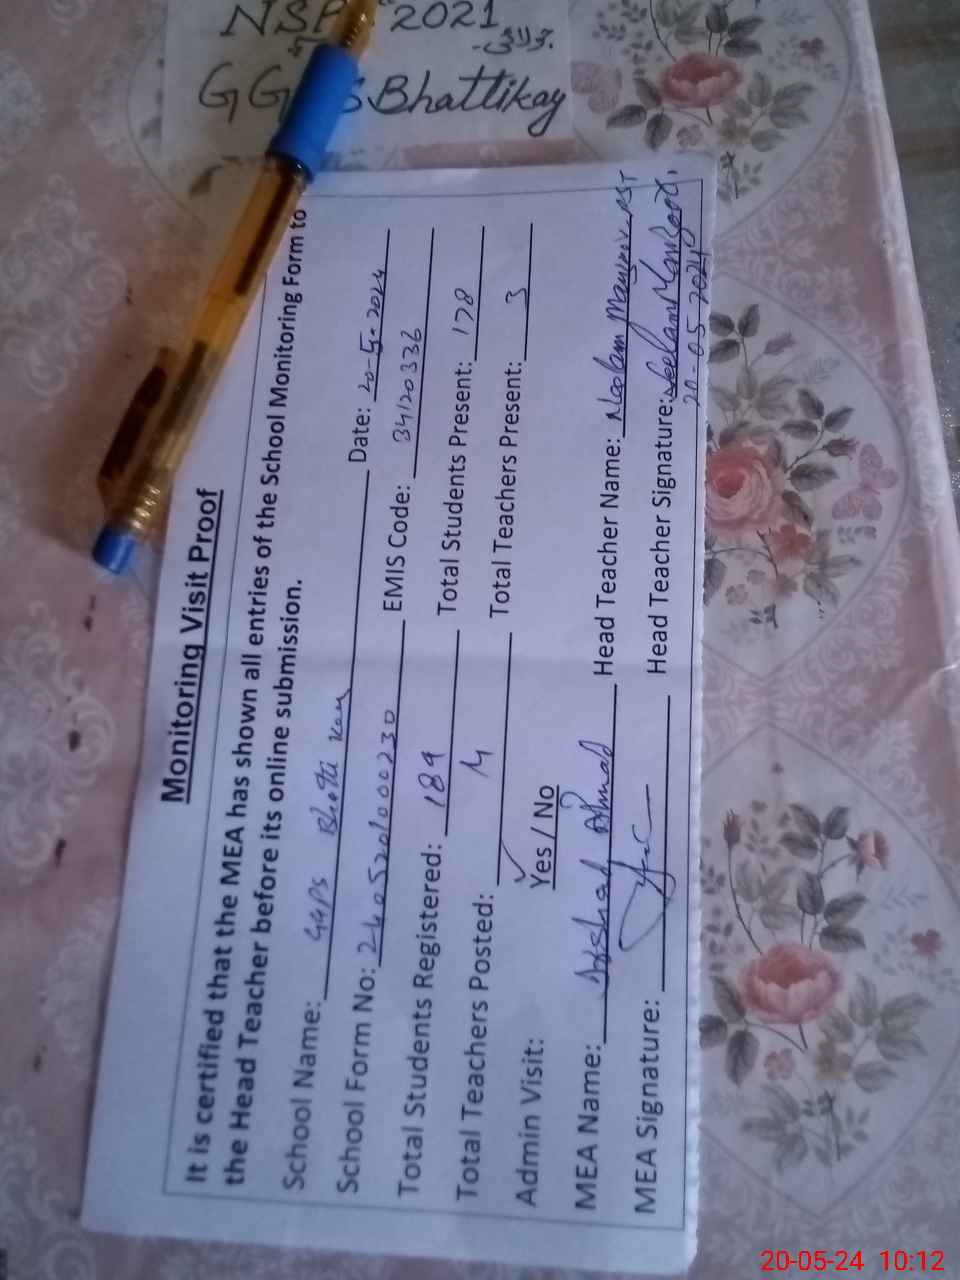 NSP 2021
GG S Bhattikay
Monitoring Visit Proof
It is certified that the MEA has shown all entries of the School Monitoring Form to
the Head Teacher before its online submission.
School Name: GGPS Bhatti Kay Date: 20-5-2024
School Form No: 2405201000230 EMIS Code: 34120336
Total Students Registered: 189 Total Students Present: 178
Total Teachers Posted: 4 Total Teachers Present: 3
Admin Visit: Yes / No
MEA Name: Arshad Ahmad Head Teacher Name: Neelam Manzoor PST
MEA Signature: Head Teacher Signature: Neelam Manzoor
20-05-2024
20-05-24 10:12